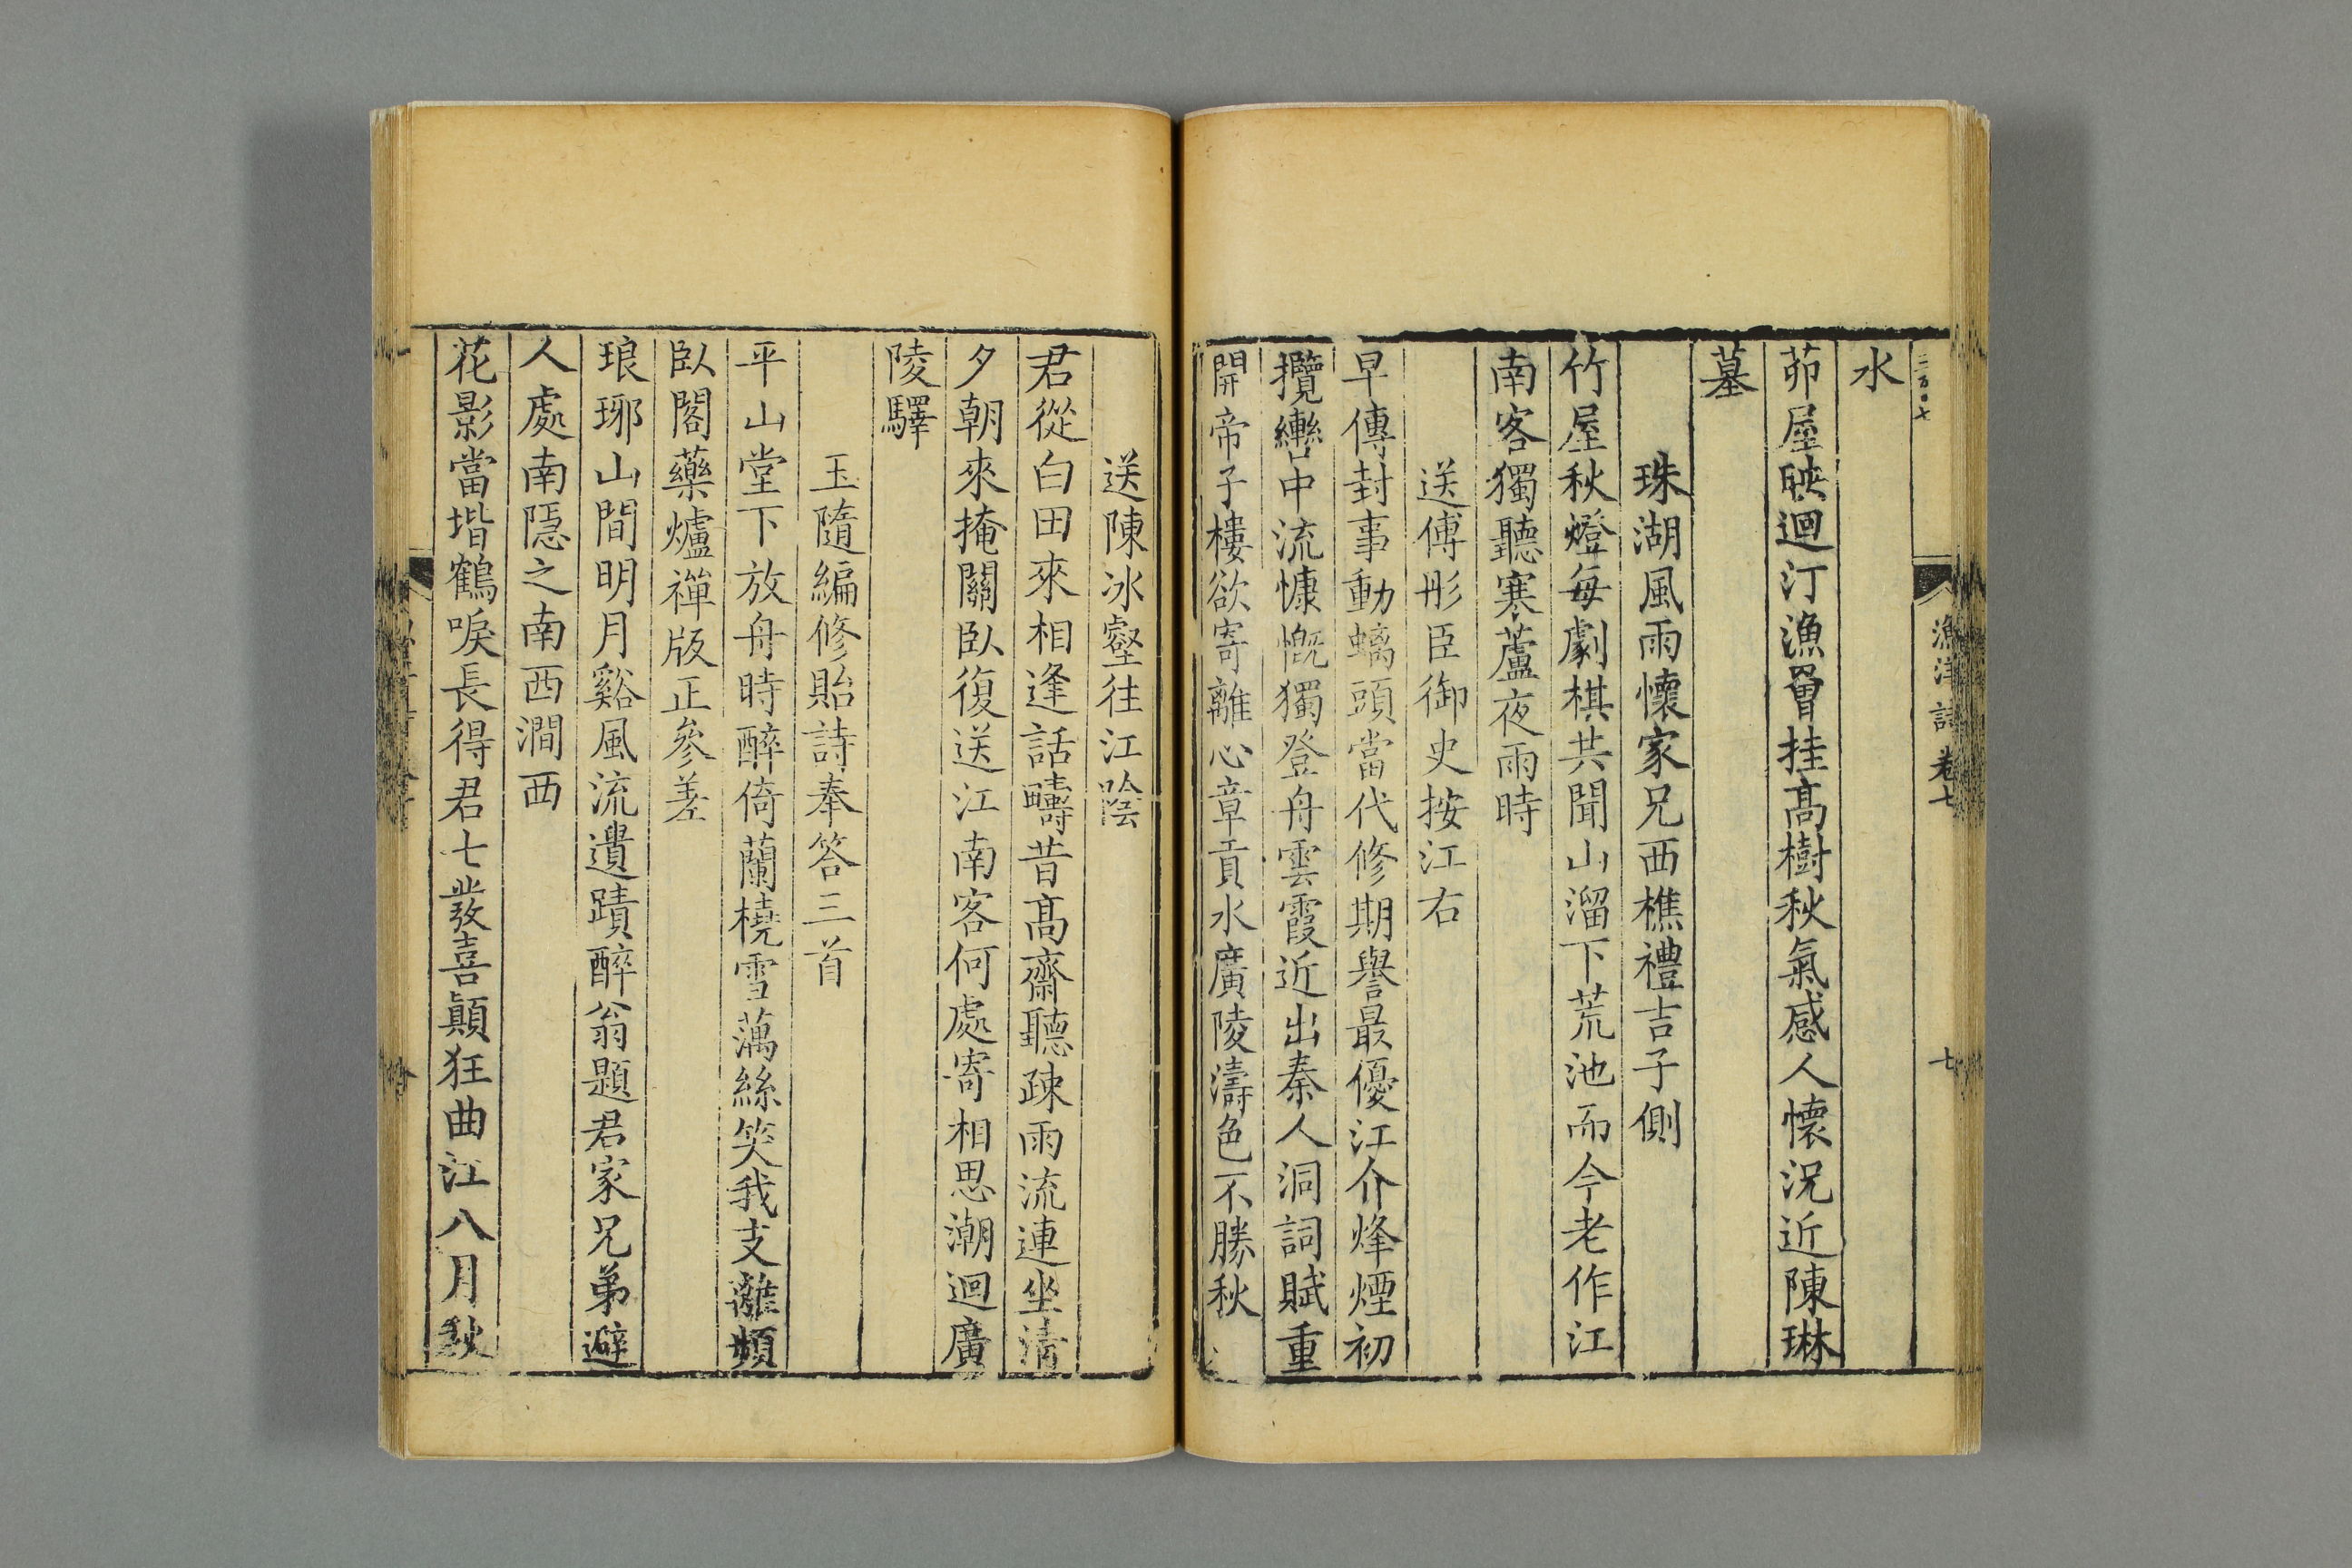 二百〇七
漁洋詩 卷七
七
水
茆屋映迴汀漁罾挂高樹秋氣感人懷況近陳琳
墓
珠湖風雨懷家兄西樵禮吉子側
竹屋秋燈每劇棋共聞山溜下荒池而今老作江
南客獨聽寒蘆夜雨時
送傅彤臣御史按江右
早傳封事動螭頭當代修期譽最優江介烽煙初
攬轡中流慷慨獨登舟雲霞近出秦人洞詞賦重
開帝子樓欲寄離心章貢水廣陵濤色不勝秋
送陳冰壑往江陰
君從白田來相逢話疇昔高齋聽疎雨流連坐清
夕朝來掩關臥復送江南客何處寄相思潮迴廣
陵驛
玉隨編修貽詩奉答三首
平山堂下放舟時時醉倚蘭橈雪藕絲笑我支離頻
臥閣藥爐禪版正參差
琅琊山間明月谿風流遺蹟醉翁題君家兄弟避
人處南隱之南西澗西
花影當堦鶴唳長得君七發喜顛狂曲江八月秋